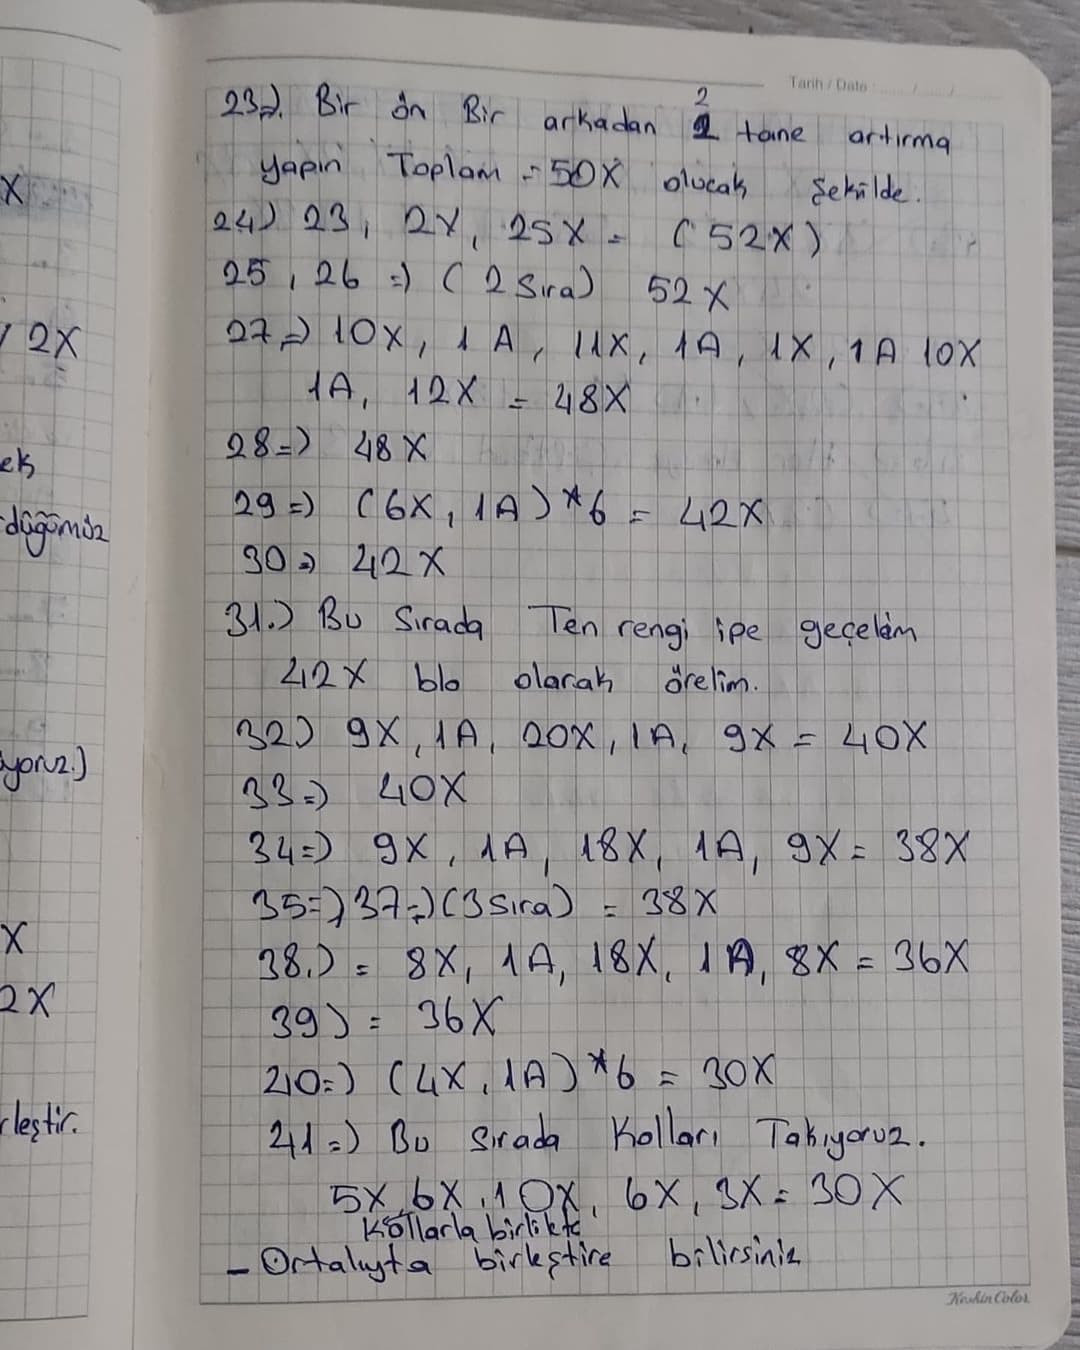 Tarih / Date : ...... / ...... / ......
23=). Bir ön Bir arkadan 2 tane artırma
yapın Toplam = 50X olucak Şekilde.
24) 23, 2V, 25X = (52X)
25, 26 =) (2 Sıra) 52X
27=) 10X, 1A, 11X, 1A, 1X, 1A 10X
1A, 12X = 48X
28=) 48X
29=) (6X, 1A)*6 = 42X
30=) 42X
31.) Bu Sırada Ten rengi ipe geçelim
42X blo olarak örelim.
32) 9X, 1A, 20X, 1A, 9X = 40X
33=) 40X
34=) 9X, 1A, 18X, 1A, 9X = 38X
35=) 37=) (3 Sıra) = 38X
38.) = 8X, 1A, 18X, 1A, 8X = 36X
39) = 36X
40=) (4X, 1A)*6 = 30X
41=) Bu Sırada Kolları Takıyoruz.
5X, 6X, 10X, 6X, 3X = 30X
Kollarla birlikte
- Ortalıyta birleştire bilirsiniz
Keskin Color
X
/ 2X
ek
düğümüz
yoruz.)
X
2X
rleştir.